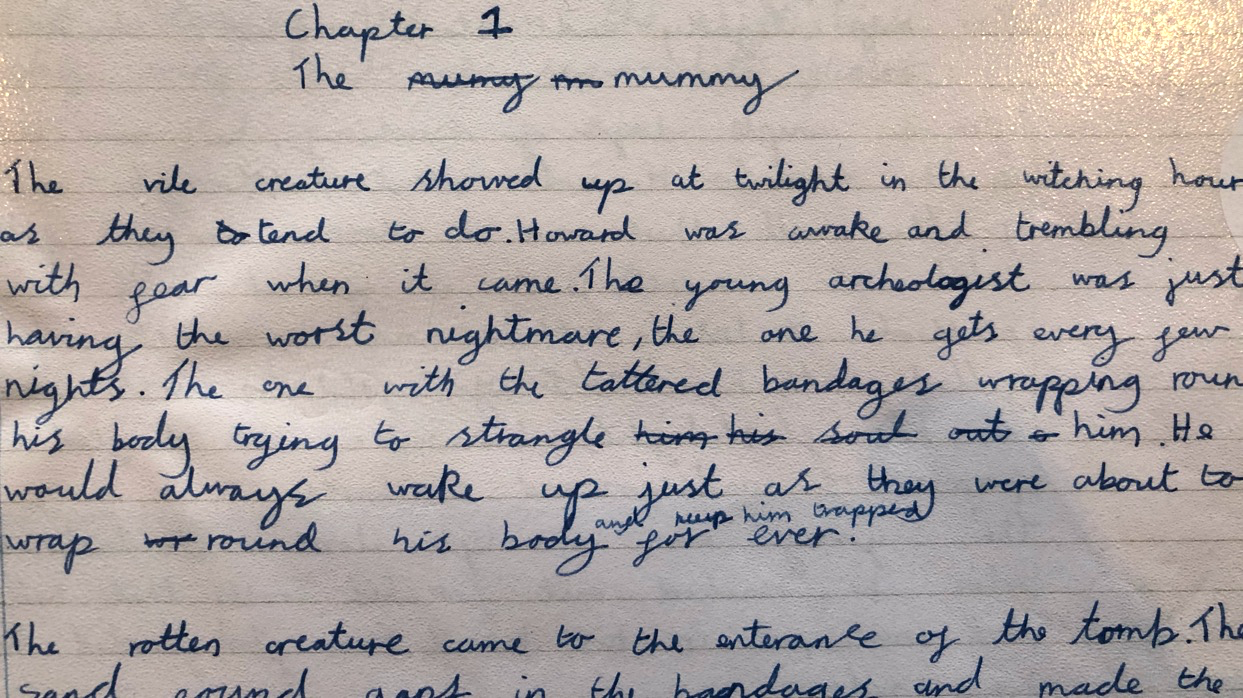 Chapter 1
The mumy m mummy
The vile creature showed up at twilight in the witching hour
as they to tend to do. Howard was awake and trembling
with fear when it came. The young archeologist was just
having the worst nightmare, the one he gets every few
nights. The one with the tattered bandages wrapping roun
his body trying to strangle him his soul out o him. He
would always wake up just as they were about to
and keep him trapped
wrap wr round his body for ever.
The rotten creature came to the enterance of the tomb. The
sand found gaps in the bandages and made the